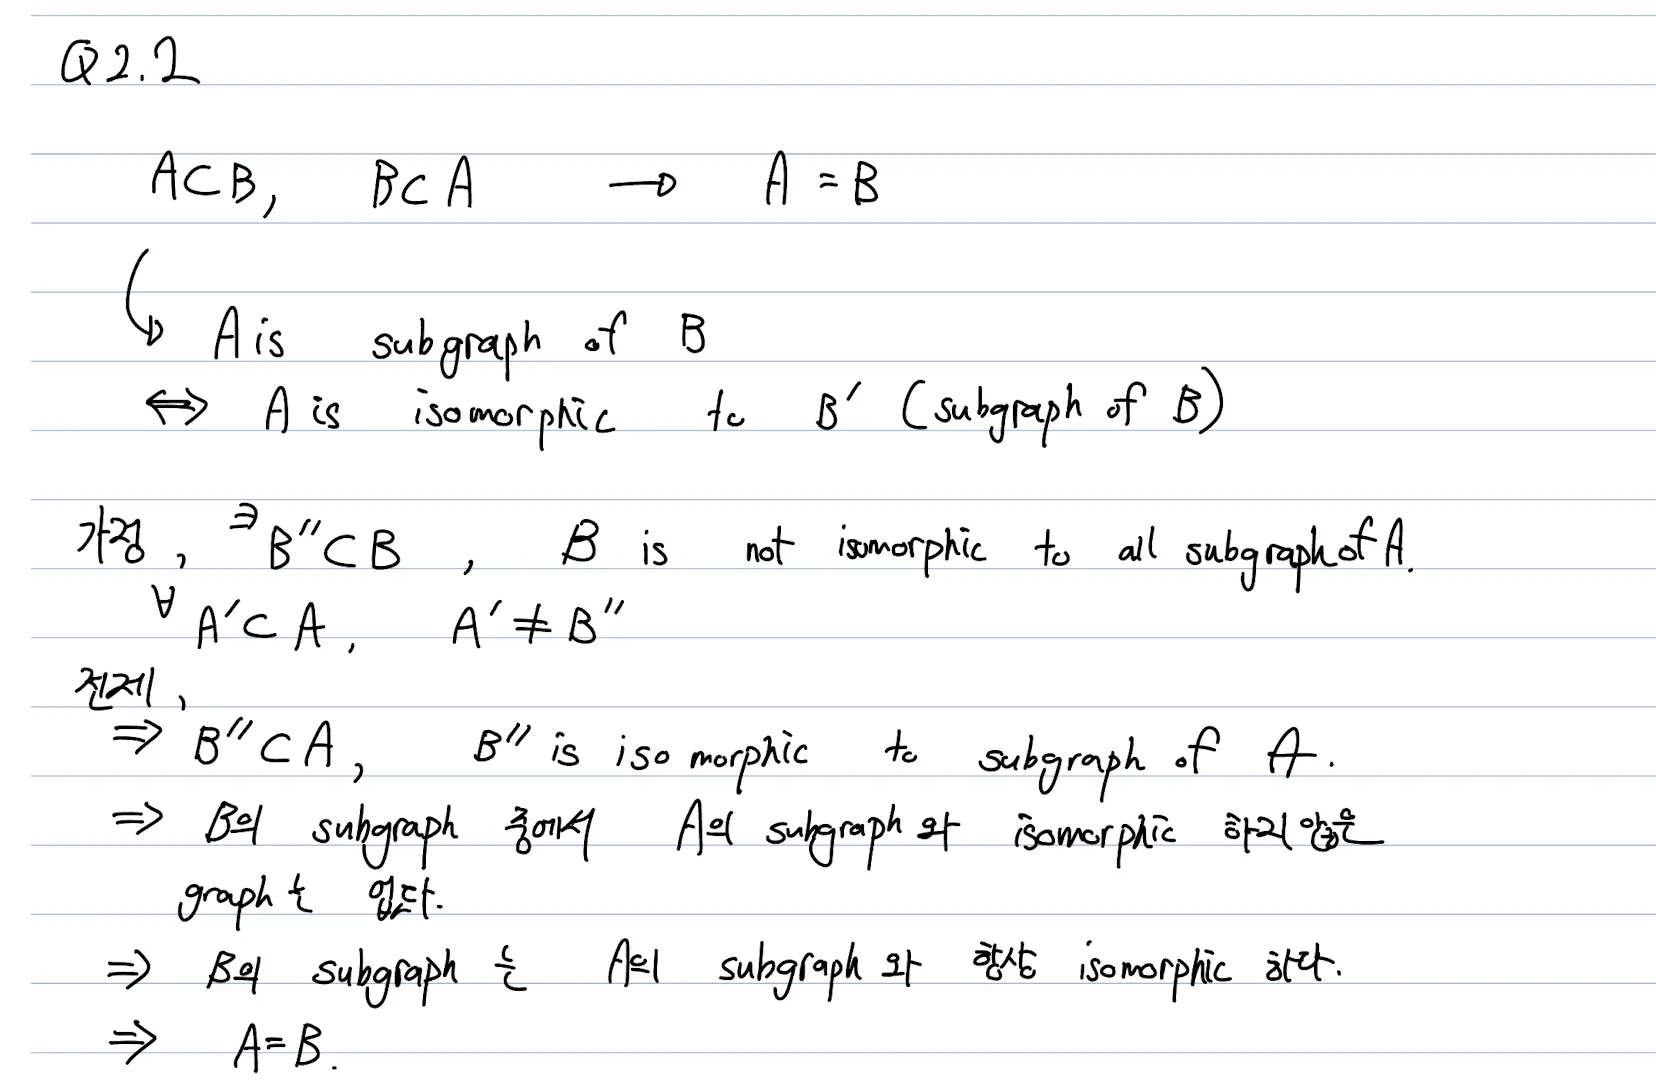 Q2.2
A⊂B, B⊂A → A = B
↳ A is subgraph of B
⇔ A is isomorphic to B′ (subgraph of B)
가정, ∃B″⊂B, B is not isomorphic to all subgraph of A.
∀A′⊂A, A′≠B″
전제,
⇒ B″⊂A, B″ is isomorphic to subgraph of A.
⇒ B의 subgraph 중에서 A의 subgraph와 isomorphic 하지 않은
graph는 없다.
⇒ B의 subgraph는 A의 subgraph와 항상 isomorphic 하다.
⇒ A=B.